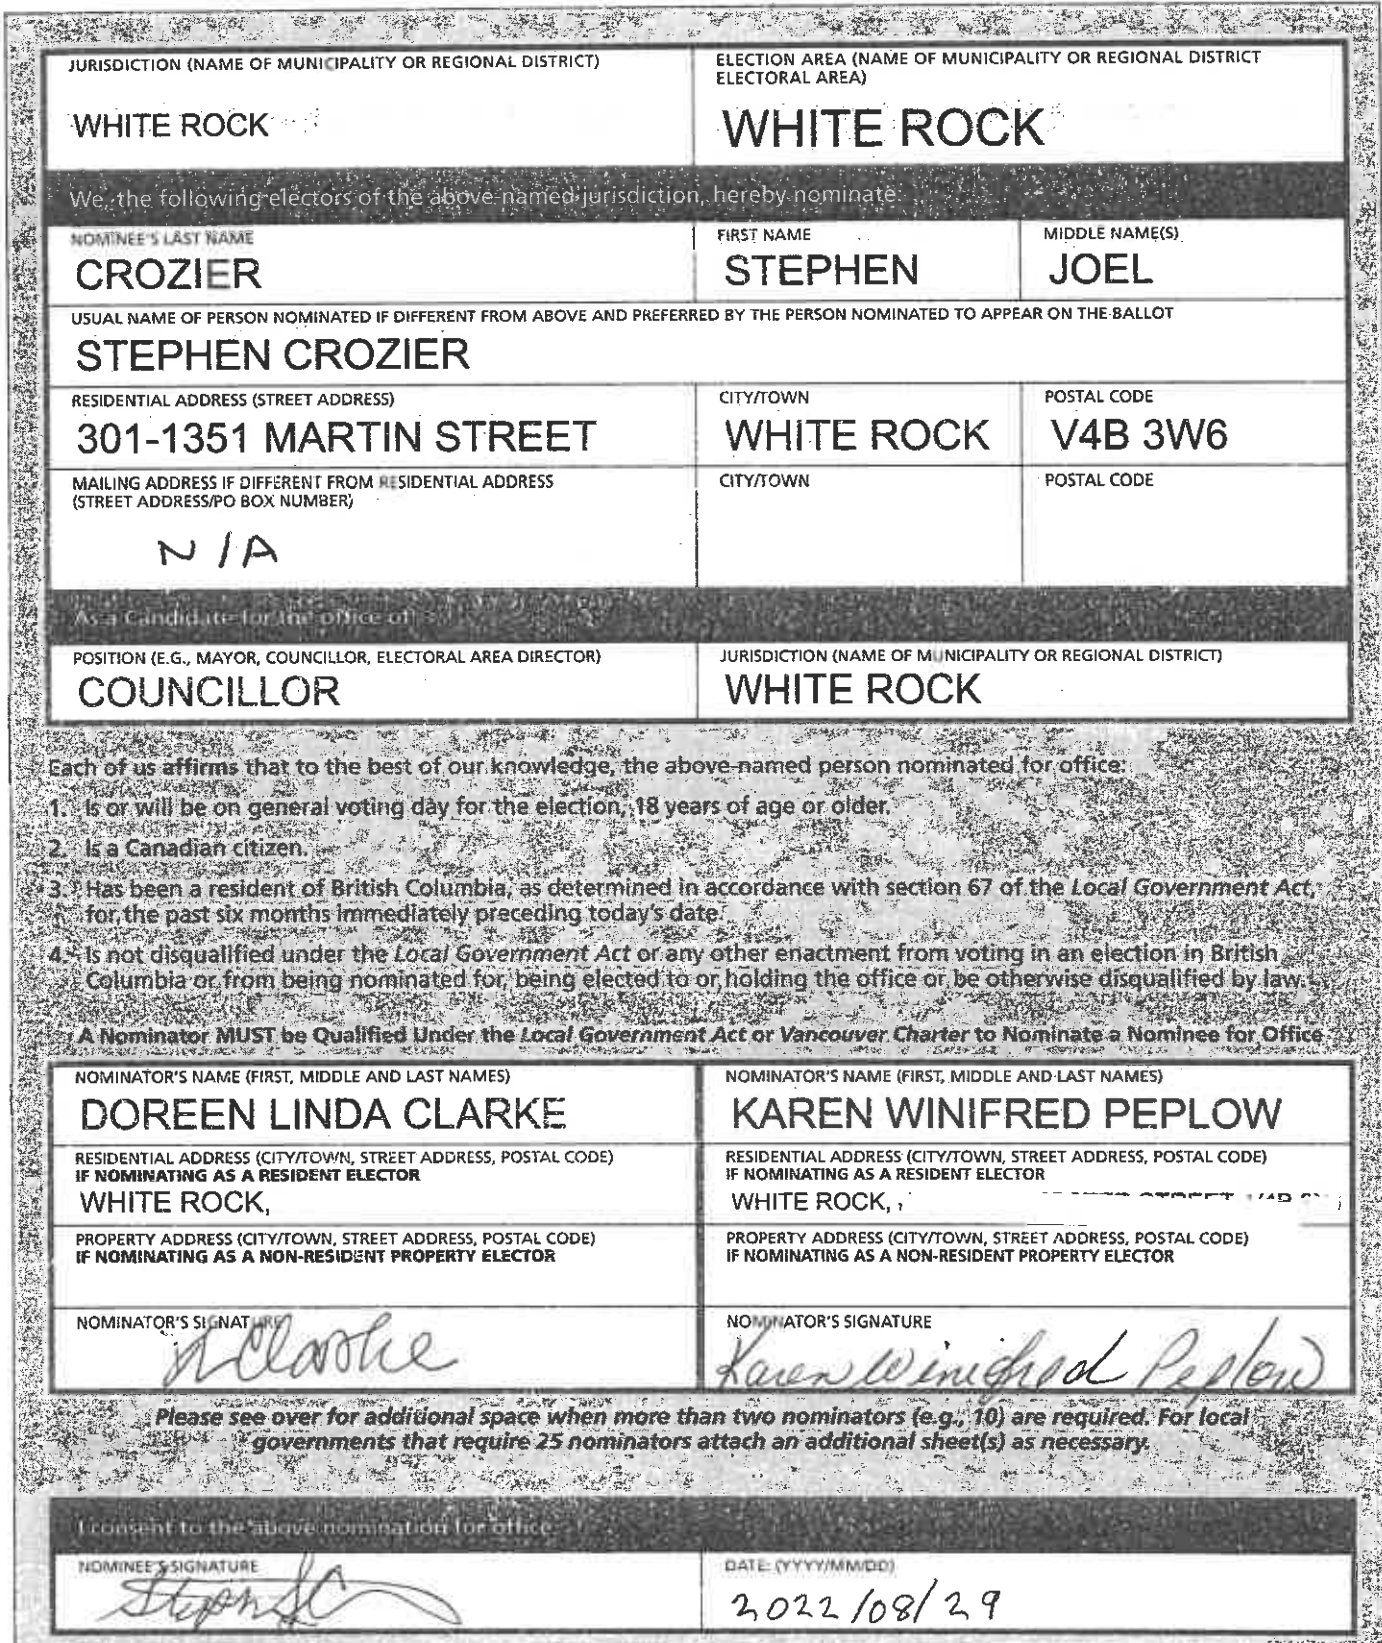 JURISDICTION (NAME OF MUNICIPALITY OR REGIONAL DISTRICT)
WHITE ROCK
ELECTION AREA (NAME OF MUNICIPALITY OR REGIONAL DISTRICT
ELECTORAL AREA)
WHITE ROCK
We, the following electors of the above-named jurisdiction, hereby nominate:
NOMINEE'S LAST NAME
CROZIER
FIRST NAME
STEPHEN
MIDDLE NAME(S)
JOEL
USUAL NAME OF PERSON NOMINATED IF DIFFERENT FROM ABOVE AND PREFERRED BY THE PERSON NOMINATED TO APPEAR ON THE BALLOT
STEPHEN CROZIER
RESIDENTIAL ADDRESS (STREET ADDRESS)
301-1351 MARTIN STREET
CITY/TOWN
WHITE ROCK
POSTAL CODE
V4B 3W6
MAILING ADDRESS IF DIFFERENT FROM RESIDENTIAL ADDRESS
(STREET ADDRESS/PO BOX NUMBER)
N/A
CITY/TOWN
POSTAL CODE
As a Candidate for the office of
POSITION (E.G., MAYOR, COUNCILLOR, ELECTORAL AREA DIRECTOR)
COUNCILLOR
JURISDICTION (NAME OF MUNICIPALITY OR REGIONAL DISTRICT)
WHITE ROCK
Each of us affirms that to the best of our knowledge, the above-named person nominated for office:
1. Is or will be on general voting day for the election, 18 years of age or older.
2. Is a Canadian citizen.
3. Has been a resident of British Columbia, as determined in accordance with section 67 of the Local Government Act,
for the past six months immediately preceding today's date.
4. Is not disqualified under the Local Government Act or any other enactment from voting in an election in British
Columbia or from being nominated for, being elected to or holding the office or be otherwise disqualified by law.
A Nominator MUST be Qualified Under the Local Government Act or Vancouver Charter to Nominate a Nominee for Office
NOMINATOR'S NAME (FIRST, MIDDLE AND LAST NAMES)
DOREEN LINDA CLARKE
RESIDENTIAL ADDRESS (CITY/TOWN, STREET ADDRESS, POSTAL CODE)
IF NOMINATING AS A RESIDENT ELECTOR
WHITE ROCK,
PROPERTY ADDRESS (CITY/TOWN, STREET ADDRESS, POSTAL CODE)
IF NOMINATING AS A NON-RESIDENT PROPERTY ELECTOR
NOMINATOR'S SIGNATURE
Clarke
NOMINATOR'S NAME (FIRST, MIDDLE AND LAST NAMES)
KAREN WINIFRED PEPLOW
RESIDENTIAL ADDRESS (CITY/TOWN, STREET ADDRESS, POSTAL CODE)
IF NOMINATING AS A RESIDENT ELECTOR
WHITE ROCK,
PROPERTY ADDRESS (CITY/TOWN, STREET ADDRESS, POSTAL CODE)
IF NOMINATING AS A NON-RESIDENT PROPERTY ELECTOR
NOMINATOR'S SIGNATURE
Karen Winifred Peplow
Please see over for additional space when more than two nominators (e.g., 10) are required. For local
governments that require 25 nominators attach an additional sheet(s) as necessary.
I consent to the above nomination for office
NOMINEE'S SIGNATURE
DATE: (YYYY/MM/DD)
2022/08/29